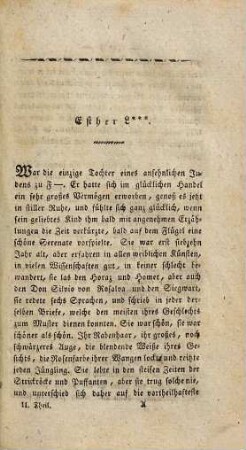 Esther L***.
War die einzige Tochter eines ansehnlichen Ju-
dens zu F—. Er hatte sich im glücklichen Handel
ein sehr großes Vermögen erworben, genoß es jetzt
in stiller Ruhe, und fühlte sich ganz glücklich, wenn
sein geliebtes Kind ihm bald mit angenehmen Erzäh-
lungen die Zeit verkürzte, bald auf dem Flügel eine
schöne Serenate vorspielte. Sie war erst siebzehn
Jahr alt, aber erfahren in allen weiblichen Künsten,
in vielen Wissenschaften gut, in keiner schlecht be-
wandert, sie las den Horaz und Homer, aber auch
den Don Silvio von Rosalva und den Siegwart,
sie redete sechs Sprachen, und schrieb in jeder der-
selben Briefe, welche den meisten ihres Geschlechts
zum Muster dienen konnten. Sie war schön, sie war
schöner als schön. Ihr Rabenhaar, ihr großes, noch
schwärzeres Auge, die blendende Weiße ihres Ge-
sichts, die Rosenfarbe ihrer Wangen lockte und reitzte
jeden Jüngling. Sie lebte in den steifen Zeiten der
Strickröcke und Puffanten, aber sie trug solche nie,
und unterschied sich daher auf die vortheilhafteste
II. Theil. A